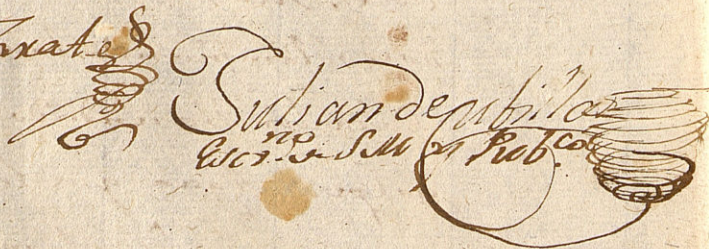 Zrate
Julian de cubillas
Escr.no de S M y Pub.co